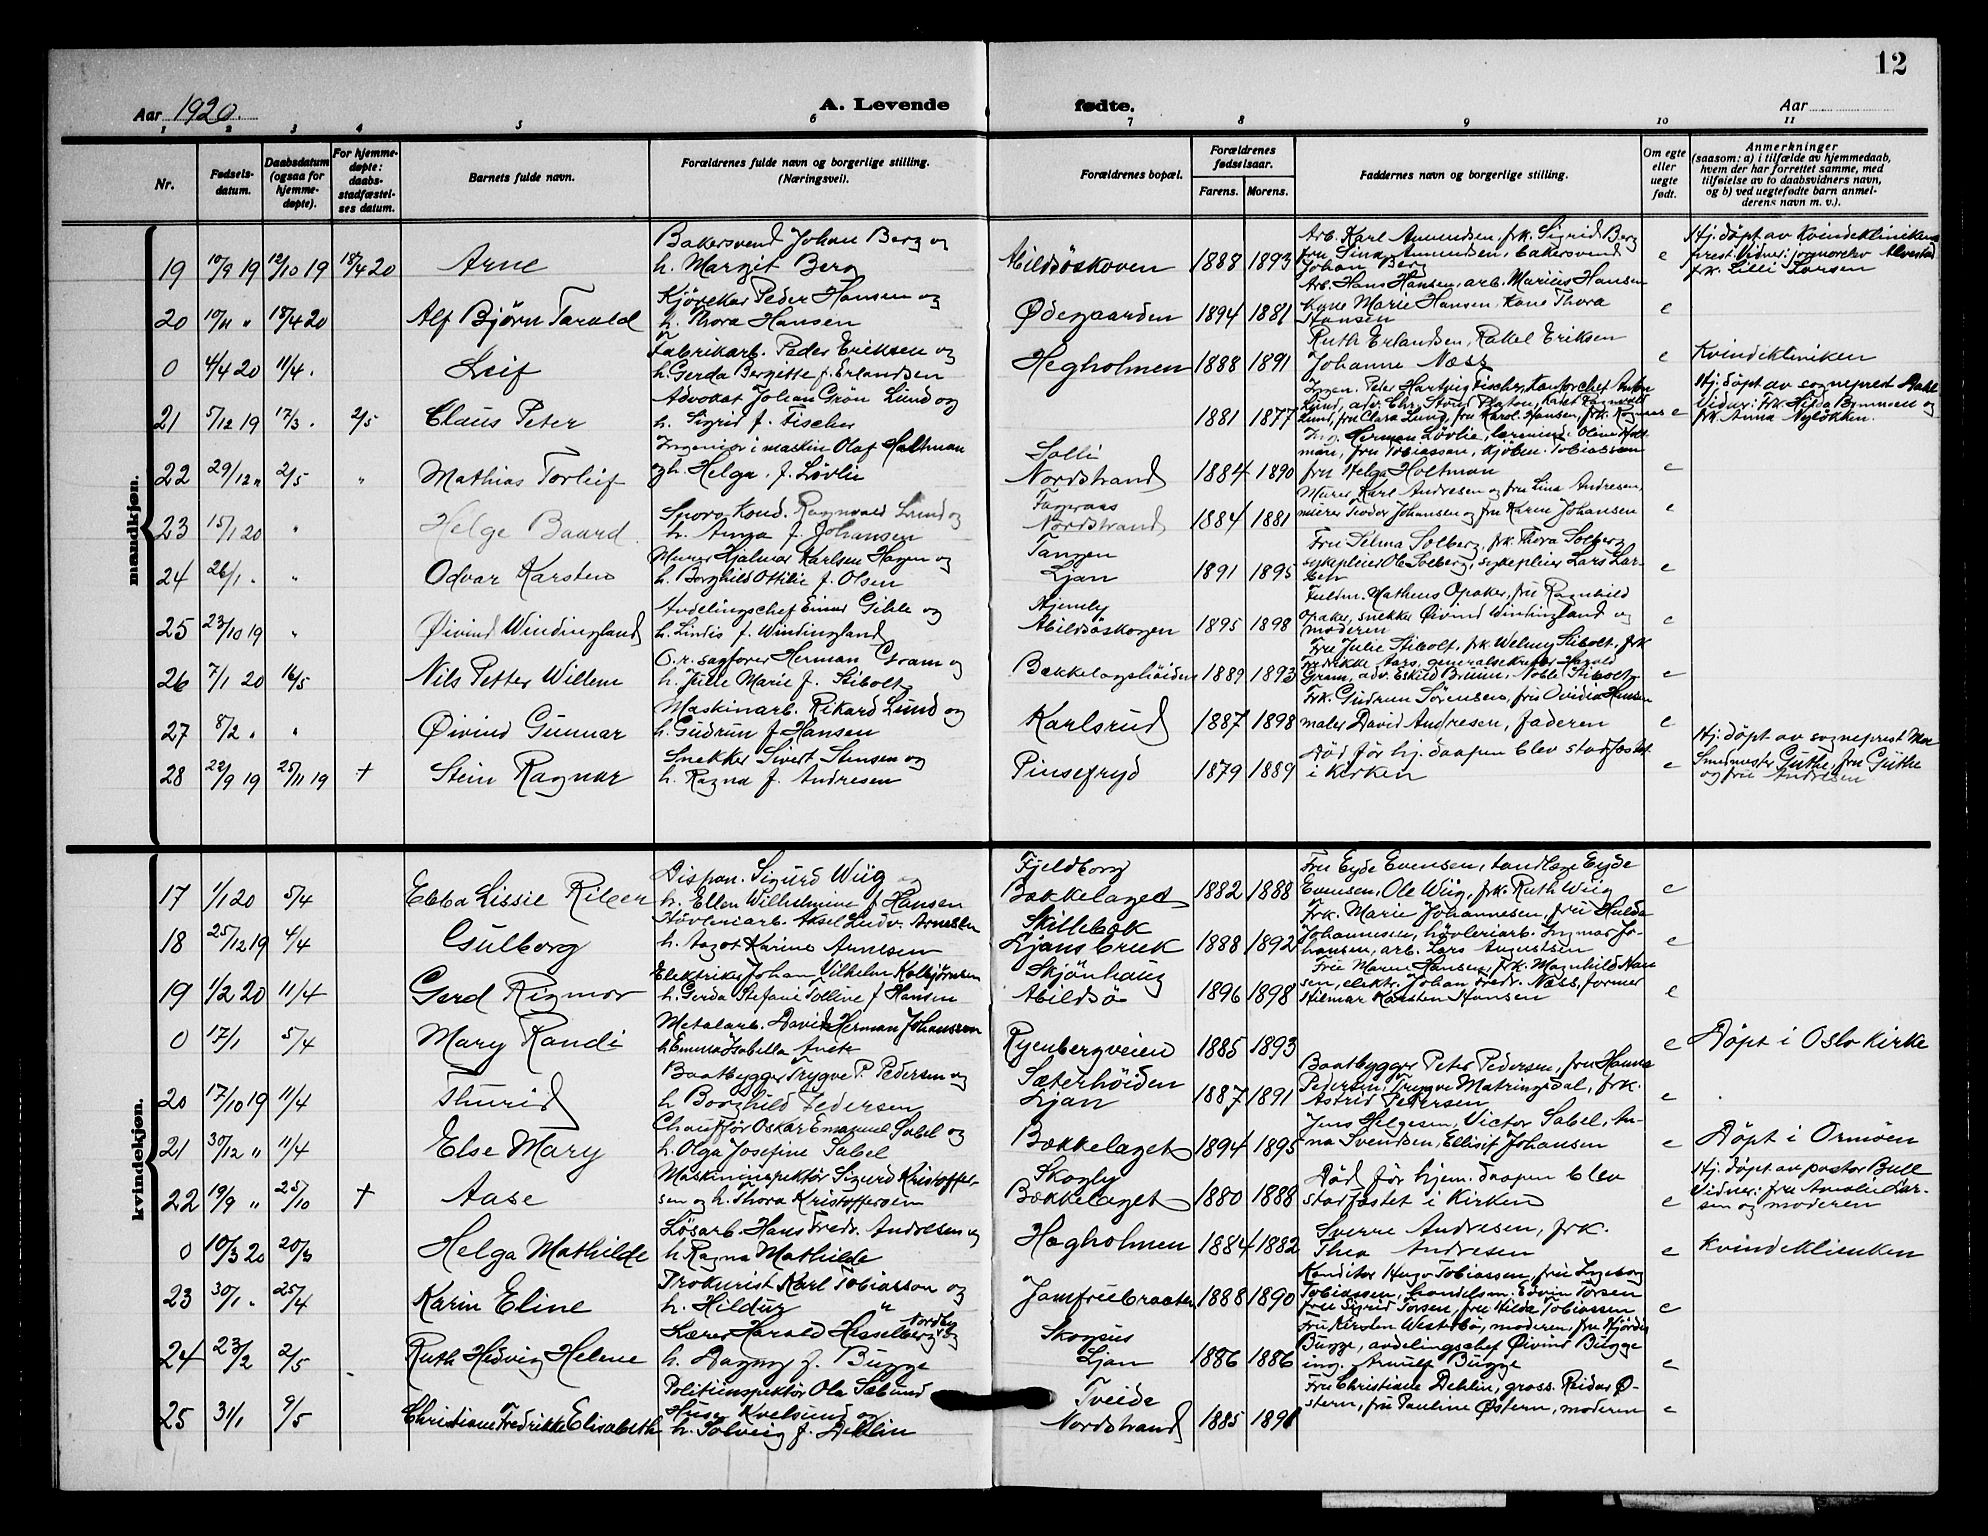 12
Aar 1920. A. Levende fødte. Aar
1 2 3 4 5 6 7 8 9 10 11
Nr. Fødsels-datum. Daabsdatum (ogsaa for hjemme-døpte). For hjemme-døpte: daabs-stadfæstel-ses datum. Barnets fulde navn. Forældrenes fulde navn og borgerlige stilling. (Næringsvei). Forældrenes bopæl. Forældrenes fødselsaar. Farens. Morens. Faddernes navn og borgerlige stilling. Om egte eller uegte født. Anmerkninger (saasom: a) i tilfælde av hjemmedaab, hvem der har forrettet samme, med tilføielse av to daabsvidners navn, og b) ved uegtefødte barn anmel-derens navn m. v.).
mandkjøn.
19 10/9 19 12/10 19 18/4 20 Arne
Bakersvend Johan Berg og
h. Margit Berg
Abildsöskoven 1888 1893
Arb. Karl Amundsen, frk. Sigrid Berg
fru Lina Amundsen, bakersvend
Johan Berg
e
Hj. døpt av Kvindeklinikens
prest. Vidner:
frk. Lilli Larsen
20 10/11 " 18/4 20 Alf Björn Tarald
Peder Hansen og
h. Thora Hansen
Ødegaarden 1894 1881
Arb. Hans Hansen, arb. Marius Hansen
Kone Marie Hansen, Kone Thora
Hansen
e
0 4/4 20 11/4 . Leif
Fabrikarb. Peder Eriksen og
h. Gerda Bergette f. Erlandsen
Hegholmen 1888 1891
Ruth Erlandsen, Rakel Eriksen
Johanne Næss
e
Kvindekliniken
21 5/12 19 17/3 . 2/5 Claus Peter
Advokat Johan Grön Lund og
h. Sigrid f. Fischer
1881 1877
Ingen. Peter Hartvig Fischer, Kontorchef
Lund, adv. Chr. Platou,
Lund, fru Clara Lund, fru Karol. Hansen, frk.
e
Hj. döpt av sogneprest
Vidner: frk. Hilda og
frk. Anna Nyløkken.
22 29/12 " 2/5 " Mathias Torleif
Ingeniør i maskin Olaf Holtman
og h. Helga, f. Lövlie
Solli
Nordstrand 1884 1890
Ing. Herman Lövlie, Oline Holt-
man, fru Tobiassen, Kjøbm. Tobiassen
fru Helga Holtman
e
23 15/1 20 " Helge Baard
Sporv. Kond. Ragnvald Lund og
h. Anna f. Johansen
Fageraas
Nordstrand 1884 1881
Murer Karl Andresen og fru Lina Andresen,
murer Teodor Johansen og fru Karen Johansen
e
24 26/1 . " Odvar Karsten
Murer Hjalmar Karlsen Hagen og
h. Borghild Ottilie f. Olsen
Tangen
Ljan 1891 1895
Fru Selma Solberg, frk. Thora Solberg
sykepleier Ole Solberg, sykepleier Lars Lar-
sen
e
25 23/10 19 " Øivind Windingland
Avdelingschef Einar Gihle og
h. Lindis f. Windingland
Hjemly
Abildsöskogen 1895 1898
Fuldm. Matheus Opaker, fru Ragnhild
Opaker, snekker Øivind Windingland og
moderen
e
26 7/1 20 16/5 Nils Petter Willem
O.r. sagfører Herman Gram og
h. Julie Marie f. Stibolt
Bækkelagshöiden 1889 1893
Fru Julie Stibolt, frk. Stibolt, frk
Fredrikke Aars, generalsekretær Harald
Gram, adv. Eskild Bruun, Stibolt
e
27 8/2 . " Øivind Gunnar
Maskinarb. Rikard Lund og
h. Gudrun f Hansen
Karlsrud 1887 1898
Frk. Gudrun Sörensen, fru Ovidia Hansen
maler David Andresen, faderen
e
28 22/9 19 25/11 19 + Stein Ragnar
Snekker Sivert Stensen og
h. Ragna f. Andresen
Pinsefryd 1879 1889
Död før hj. daapen blev stadfæstet
i kirken
e
Hj. döpt av sogneprest
Smedmester Güthe, fru Güthe
og fru Andresen
kvindekjøn.
17 1/1 20 5/4 Ebba Lissie
Dispon. Sigurd Wiig og
h. Ellen Wilhelmine f Hansen
Fjeldborg
Bækkelaget 1882 1888
Fru Eyde Evensen, tandlæge Eyde
Evensen, Ole Wiig, frk. Ruth Wiig
e
18 25/12 19 4/4 Gulborg
Høvleriarb. Aksel Ludv. Arnesen
h. Aagot Karine Arnesen
Skillebæk
Ljansbruk 1888 1892
Frk. Marie Johannesen, fru Hulda
Johannesen, hövleriarb. Ingmar Jo-
hansen, arb. Lars Augustsen
e
19 1/2 20 11/4 Gerd Rigmor
Elektriker Johan Vilhelm Kolbjörnsen
h. Gerda Stefani Tolline f Hansen
Skjönhaug
Abildsö 1896 1898
Fru Maren Hansen, frk. Magnhild Han
sen, elektr. Johan Fredr. Næss, former
Hilmar Karsten Hansen
e
0 17/1 5/4 Mary Randi
Metalarb. David Herman Johanssen
h Emma Isabella
Ryenbergveien 1885 1893
e
Döpt i Oslo Kirke
20 17/10 19 11/4 Thurid
Baatbygger Trygve P. Pedersen og
h Borghild Pedersen
Sæterhöiden
Ljan 1887 1891
Baatbygger Peter Pedersen, fru Hanna
Pedersen, Trygve Matringsdal, frk.
Astrid Petersen
e
21 30/12 " 11/4 Else Mary
Chauffør Oskar Emanuel Sabel og
h. Olga Josefine Sabel
Bækkelaget 1894 1895
Jens Helgesen, Victor Sabel, An-
na Svendsen, Ellisif Johansen
e
Döpt i Ormöen
22 19/9 " 25/10 + Aase
Maskininspektör Sigurd Kristoffer-
sen og h. Thora Kristoffersen
Skogly
Bækkelaget 1880 1888
Död før hjem. daapen blev
stadfæstet i Kirken
e
Hj. döpt av pastor Bull
Vidner: fru Amalie Lar-
sen og moderen
0 10/3 20 20/3 Helga Mathilde
Løsarb. Hans Fredr. Andresen og
h Ragna Mathilde
Hegholmen 1884 1882
Sverre Andresen, frk.
Thea Andresen
e
Kvindekliniken
23 30/1 . 25/4 Karin Eline
Prokurist Karl Tobiassen og
h. Hildur "
Jomfrubraaten 1888 1890
Konditor Hugo Tobiassen, fru Ingeborg
Tobiassen, handelsm. Edvin Torsen
fru Sigrid Torsen, fru Hilda Tobiassen
e
24 23/2 2/5 Ruth Hedvig Helene
Nordby
Lærer Harald Hesselberg og
h. Dagny f. Bugge
Skogsus
Ljan 1886 1886
Fru Kirsten Westerbö, moderen, fru Hjördis
Bugge, avdelingschef Øivind Bugge
ing. Arnulf Bugge
e
25 31/1 9/5 Christiane Fredrikke Elisabeth
Politiinspektör Ola Sæbund
Huser Kvelsund og
h. Solveig f. Dehlin
Tveide
Nordstrand 1885 1891
Fru Christiane Dehlin, gross. Reidar Ø-
stern, fru Pauline Østern, moderen
e